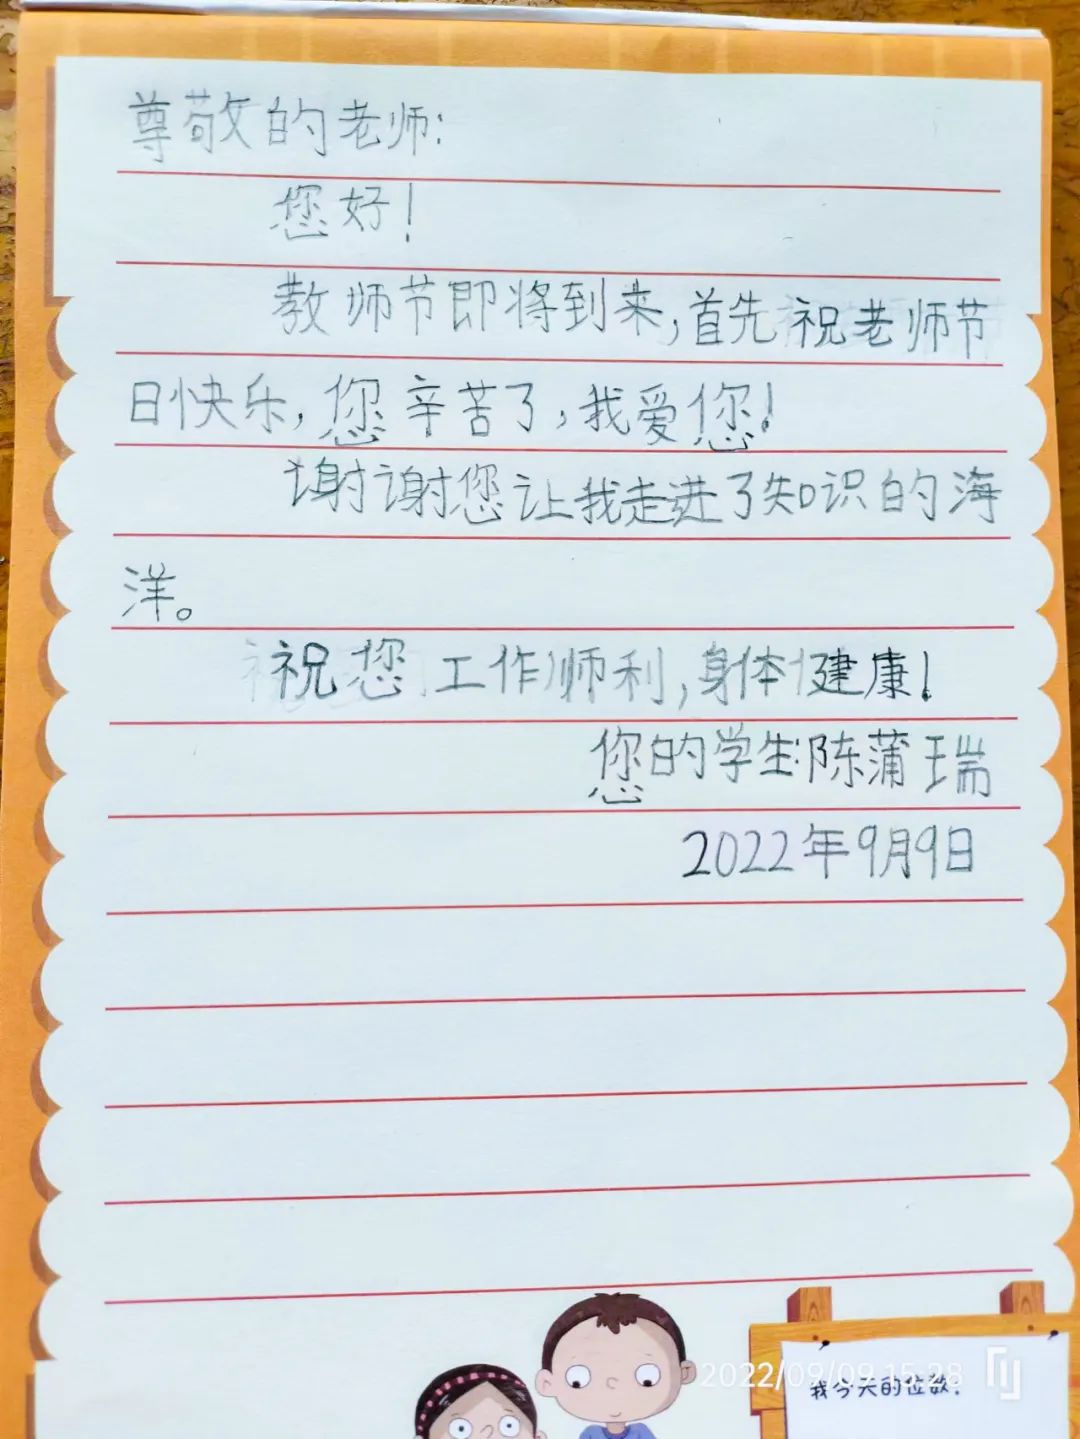 尊敬的老师:
您好!
教师节即将到来,首先祝老师节
日快乐,您辛苦了,我爱您!
谢谢您让我走进了知识的海
洋。
祝您工作师利,身体健康!
您的学生:陈蒲瑞
2022年9月9日
2022/09/09 15:28
我今天的位数: